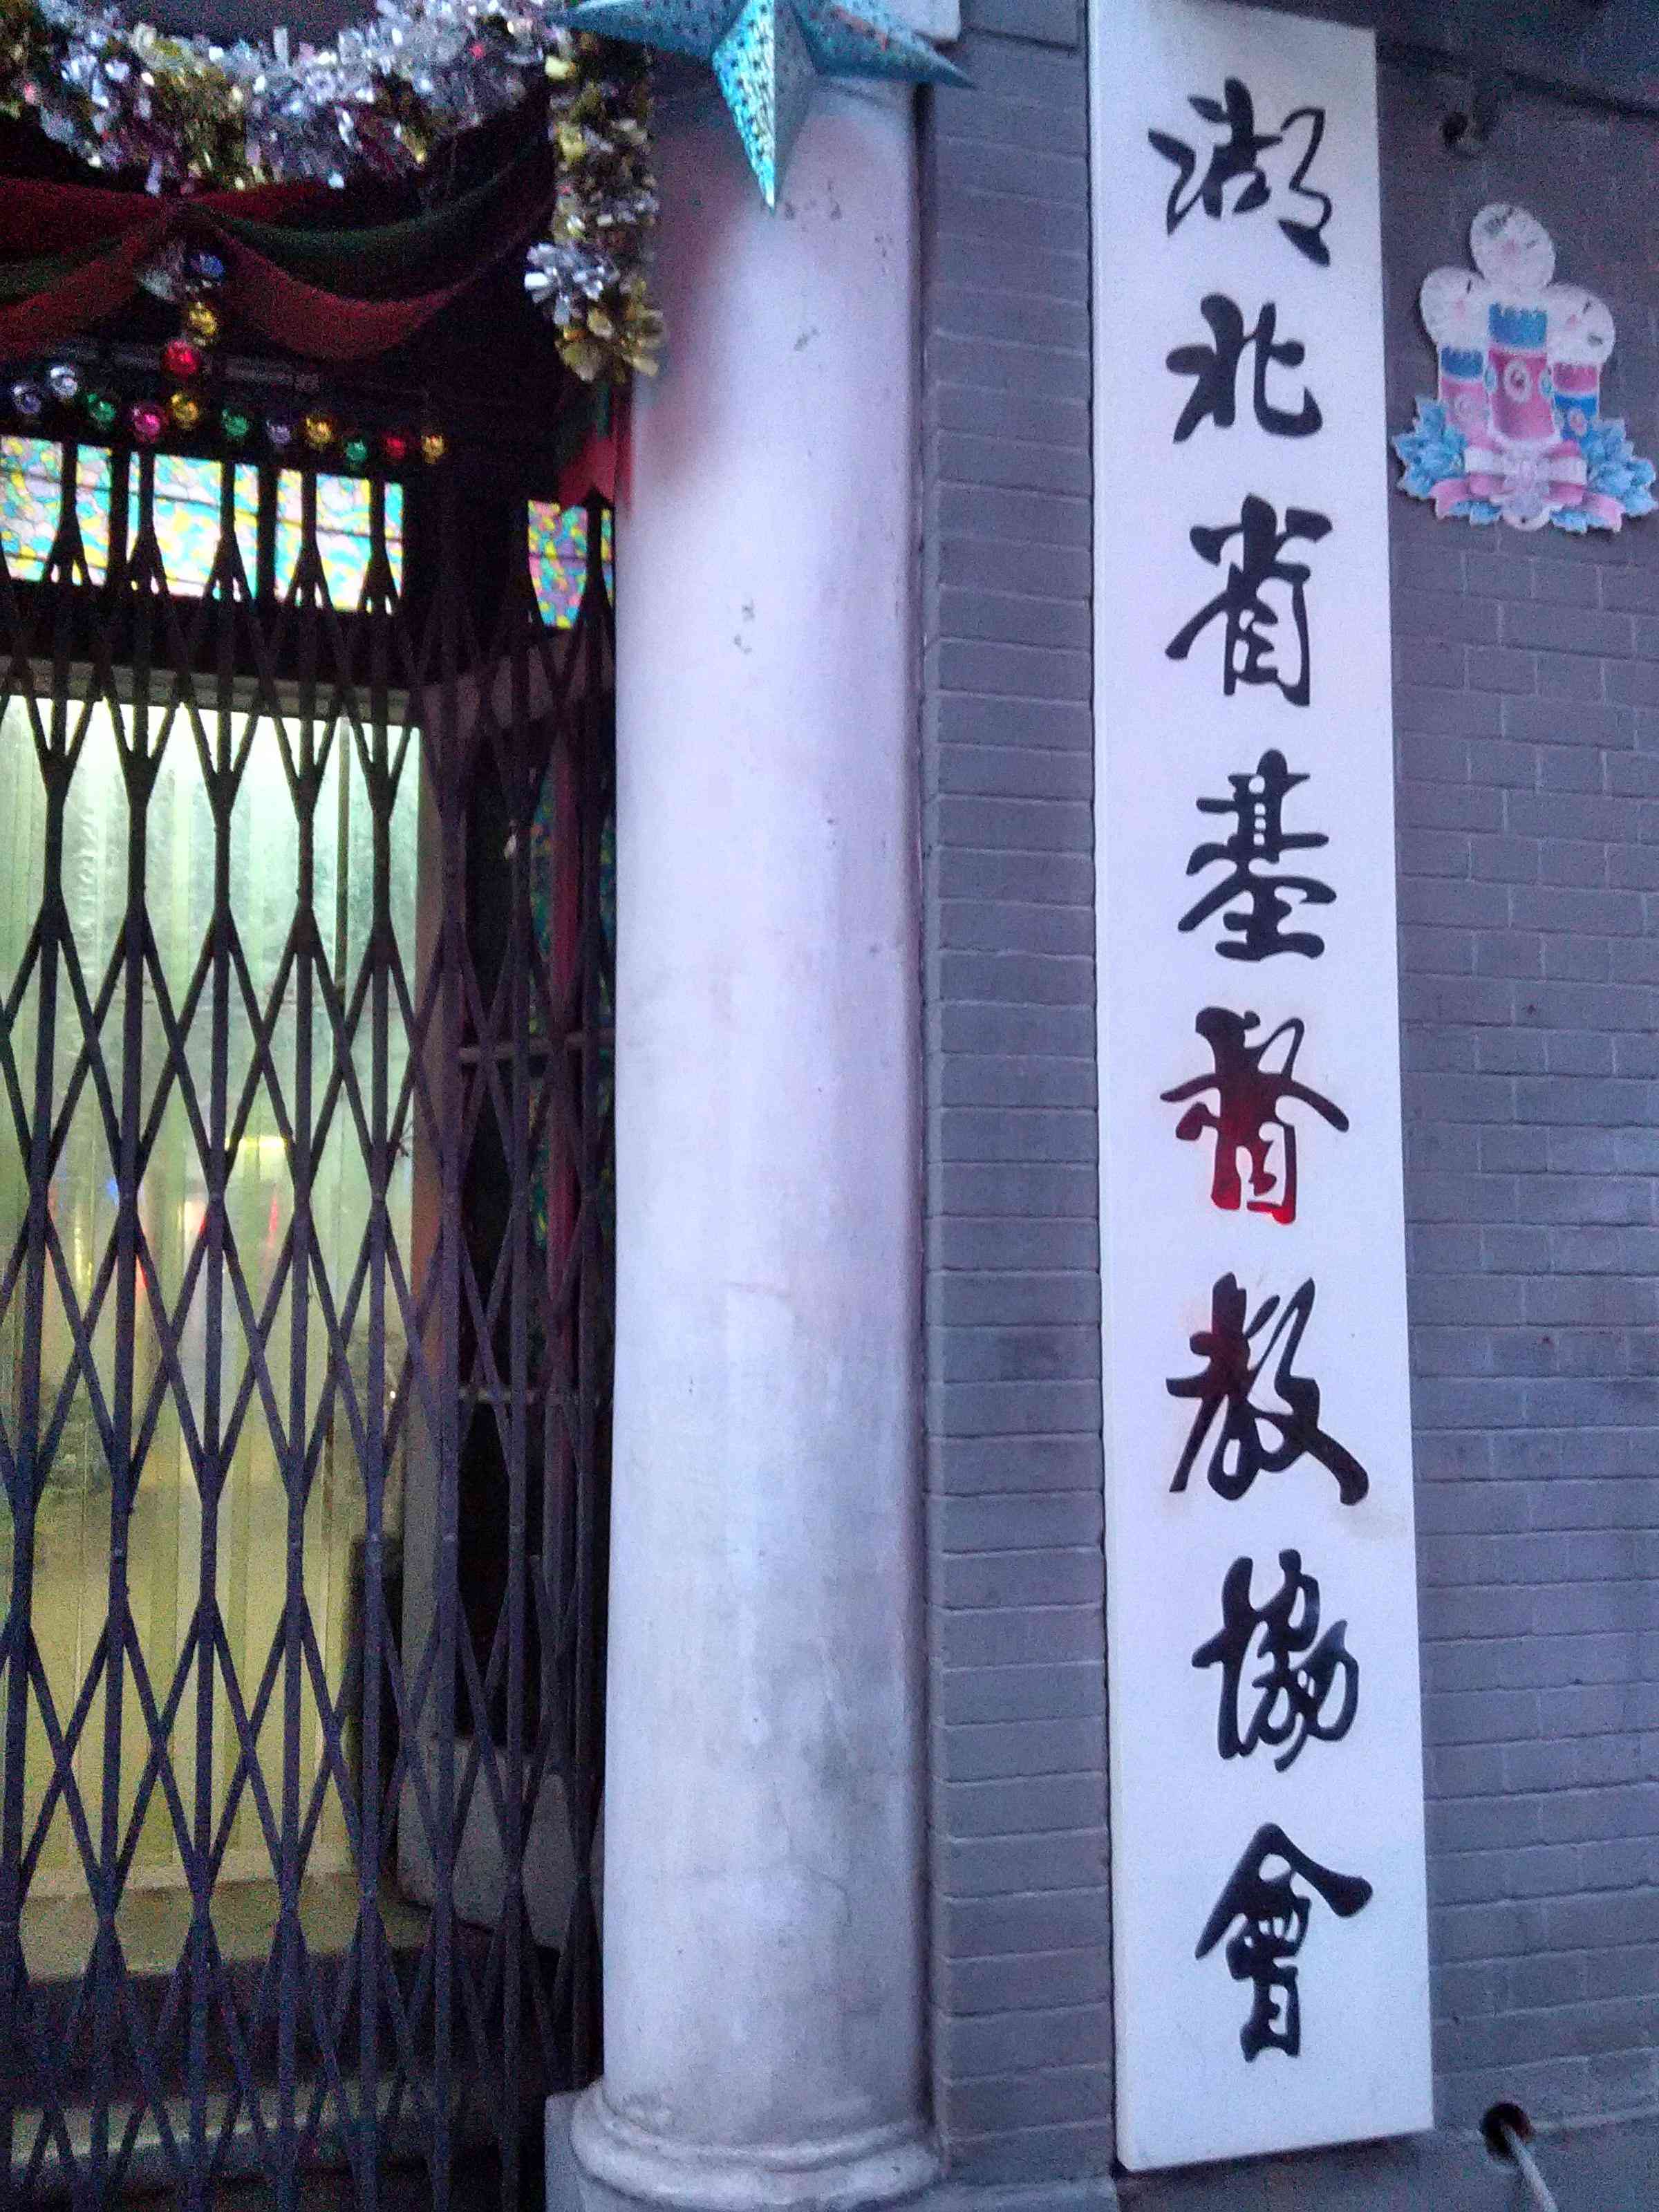 湖北省基督教協會